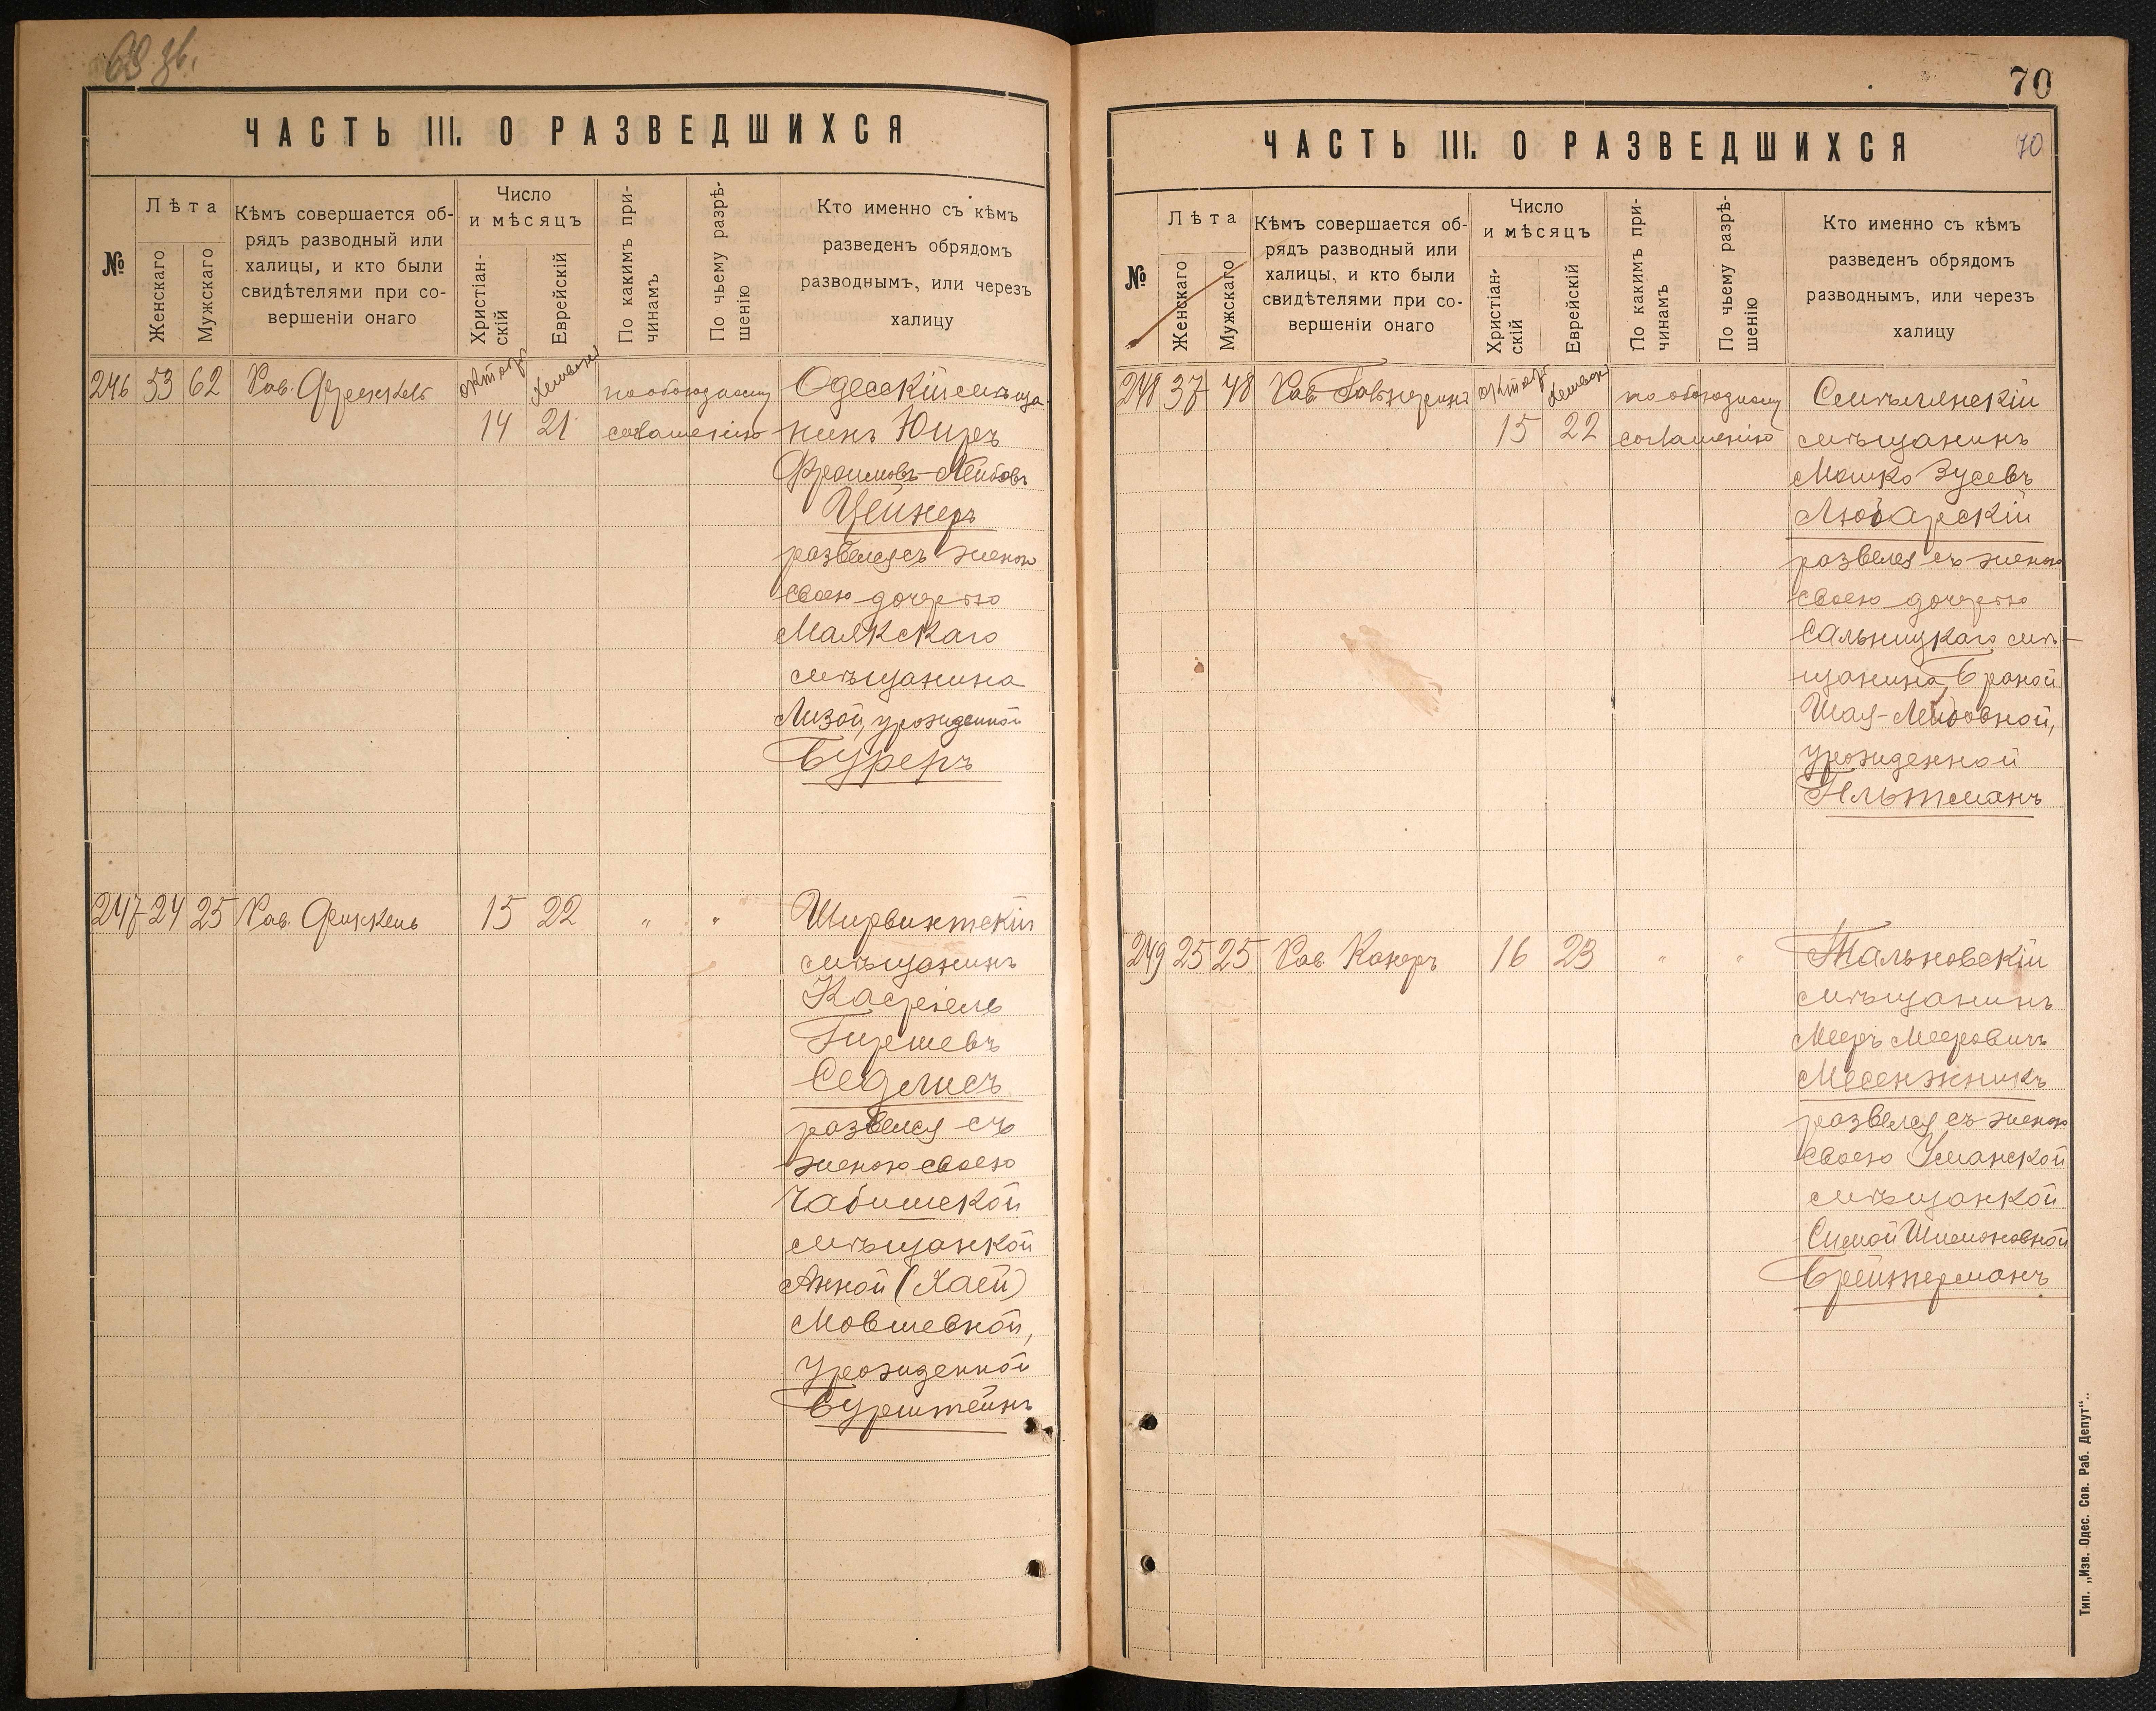 69 зв.
ЧАСТЬ III. О РАЗВЕДШИХСЯ
№
Лѣта
Женскаго
Мужскаго
Кѣмъ совершается об-
рядъ разводный или
халицы, и кто были
свидѣтелями при со-
вершеніи онаго
Число
и мѣсяцъ
Христіан-
скій
Еврейскій
По какимъ при-
чинамъ
По чьему разрѣ-
шенію
Кто именно съ кѣмъ
разведенъ обрядомъ
разводнымъ, или черезъ
халицу
246 53 62 Рав. октяб Хешван по обоюдному Одесскій мѣща-
14 21 соглашенію нинъ
Фроимовъ-Лейбовъ
Цейнеръ
развелся съ женою
своею дочерью
Маякскаго
мѣщанина
Лизой, урожденной
Буреръ
247 24 25 Рав. Финкель 15 22 " " Ширвинтскій
мѣщанинъ
Касріель
Гиршевъ
Седлисъ
развелся съ
женою своею
Чабишской
мѣщанкой
Анной (Хаей)
Мовшевной,
урожденной
Бурштейнъ
70
ЧАСТЬ III. О РАЗВЕДШИХСЯ
70
№
Лѣта
Женскаго
Мужскаго
Кѣмъ совершается об-
рядъ разводный или
халицы, и кто были
свидѣтелями при со-
вершеніи онаго
Число
и мѣсяцъ
Христіан-
скій
Еврейскій
По какимъ при-
чинамъ
По чьему разрѣ-
шенію
Кто именно съ кѣмъ
разведенъ обрядомъ
разводнымъ, или черезъ
халицу
248 37 48 Рав. октяб Хешван по обоюдному
15 22 соглашенію мѣщанинъ
Мошко Зусевъ
Любарскій
развелся съ женою
своею дочерью
Сальницкаго мѣ-
щанина, Браной
Шая-Лейбовной,
урожденной
Гельтманъ
249 25 25 Рав. Канеръ 16 23 " " Тальновскій
мѣщанинъ
Мееръ Мееровичъ
Месенжникъ
развелся съ женою
своею Уманской
мѣщанкой
Симой Шимоновной
Брейтерманъ
Тип. „Изв. Одес. Сов. Раб. Депут“..